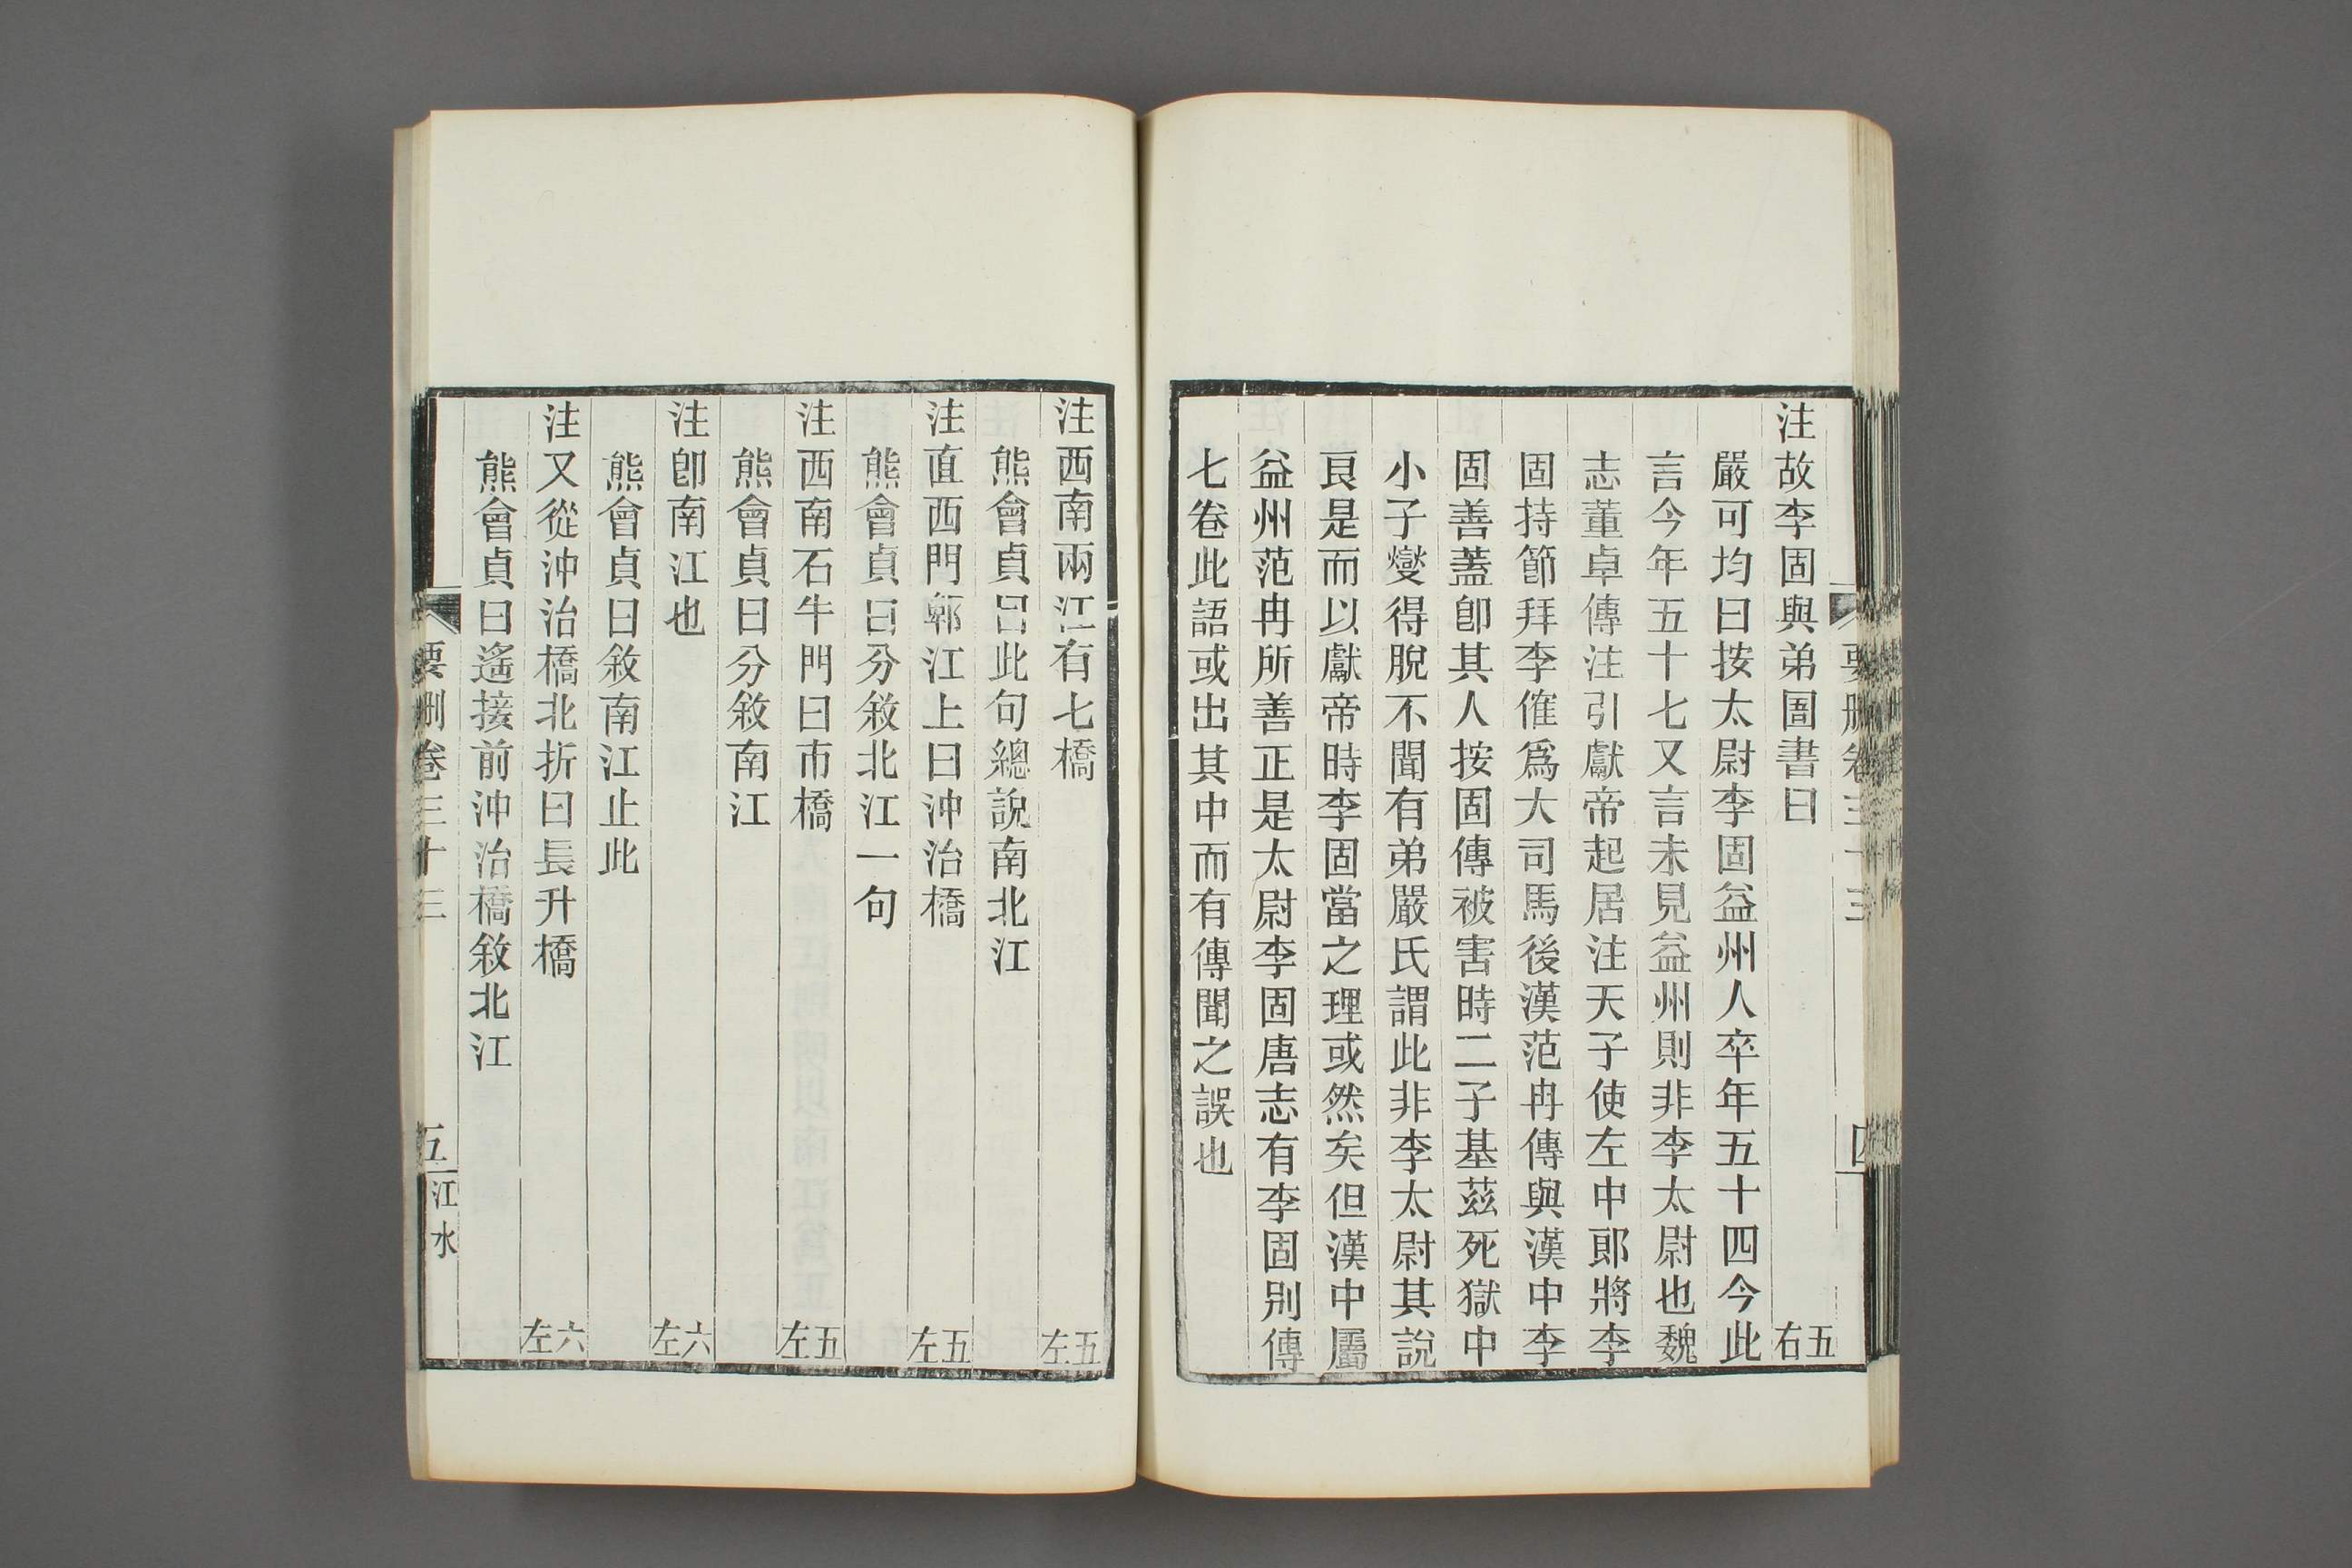 注故李固與弟圄書曰 五右
嚴可均曰按太尉李固益州人卒年五十四今此
言今年五十七又言未見益州則非李太尉也魏
志董卓傳注引獻帝起居注天子使左中郎將李
固持節拜李傕爲大司馬後漢范冉傳與漢中李
固善蓋卽其人按固傳被害時二子基茲死獄中
小子燮得脫不聞有弟嚴氏謂此非李太尉其說
良是而以獻帝時李固當之理或然矣但漢中屬
益州范冉所善正是太尉李固唐志有李固別傳
七卷此語或出其中而有傳聞之誤也
注西南兩江有七橋 五左
熊會貞曰此句總說南北江
注直西門郫江上曰沖治橋 五左
熊會貞曰分敘北江一句
注西南石牛門曰市橋 五左
熊會貞曰分敘南江
注卽南江也 六左
熊會貞曰敘南江止此
注又從沖治橋北折曰長升橋 六左
熊會貞曰遙接前沖治橋敘北江
要刪卷三十三 五 江水